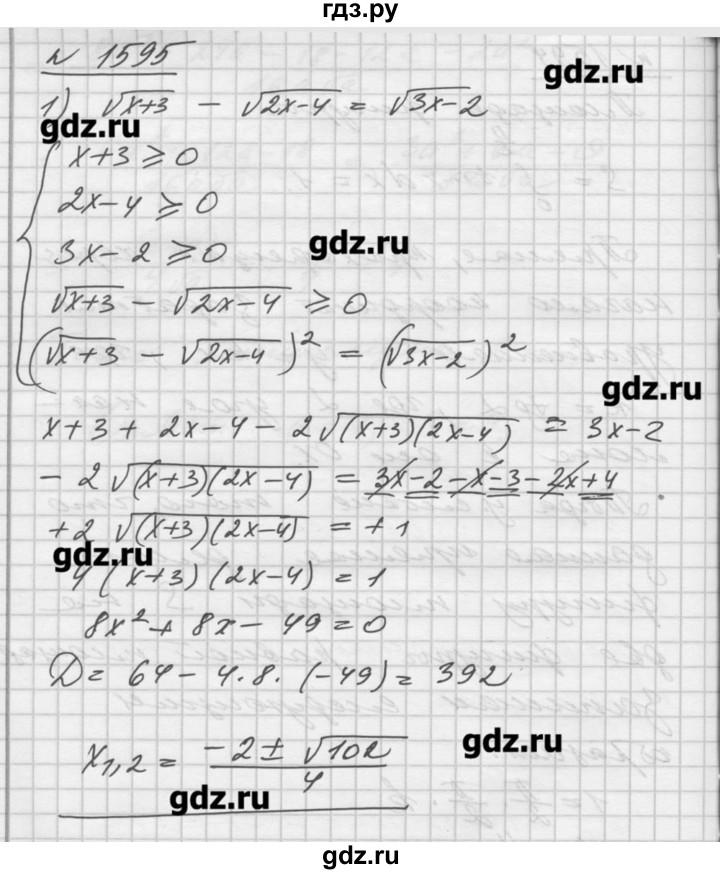 гдз.ру
№ 1595
gdz.ru
1) √(x+3) - √(2x-4) = √(3x-2)
gdz.ru
x+3 ⩾ 0
2x-4 ⩾ 0
gdz.ru
3x-2 ⩾ 0
√(x+3) - √(2x-4) ⩾ 0
(√(x+3) - √(2x-4))² = (√(3x-2))²
gdz.ru
x+3+2x-4-2√((x+3)(2x-4)) = 3x-2
-2√((x+3)(2x-4)) = 3x-2-x-3-2x+4
+2√((x+3)(2x-4)) = +1
gdz.ru
4(x+3)(2x-4) = 1
8x²+8x-49=0
D = 64-4·8·(-49) = 392
gdz.ru
x₁,₂ = (-2±√102)/4
gdz.ru
gdz.ru